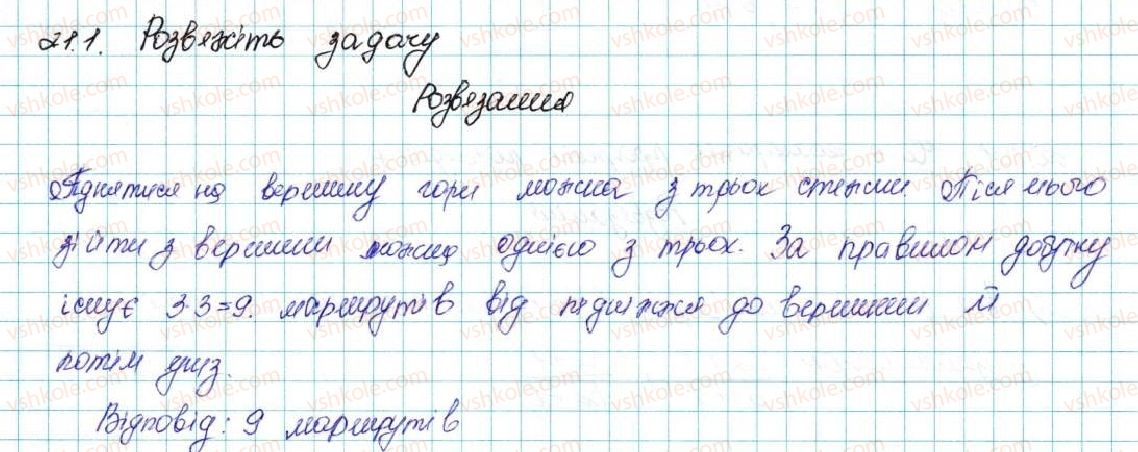 21.1. Розвяжіть задачу
Розвязання
Піднятися на вершину гори можна з трьох стежок. Після нього
зійти з вершини можна однією з трьох. За правилом добутку
існує 3·3=9. маршрутів від підніжжя до вершини й
потім униз.
Відповід: 9 маршрутів